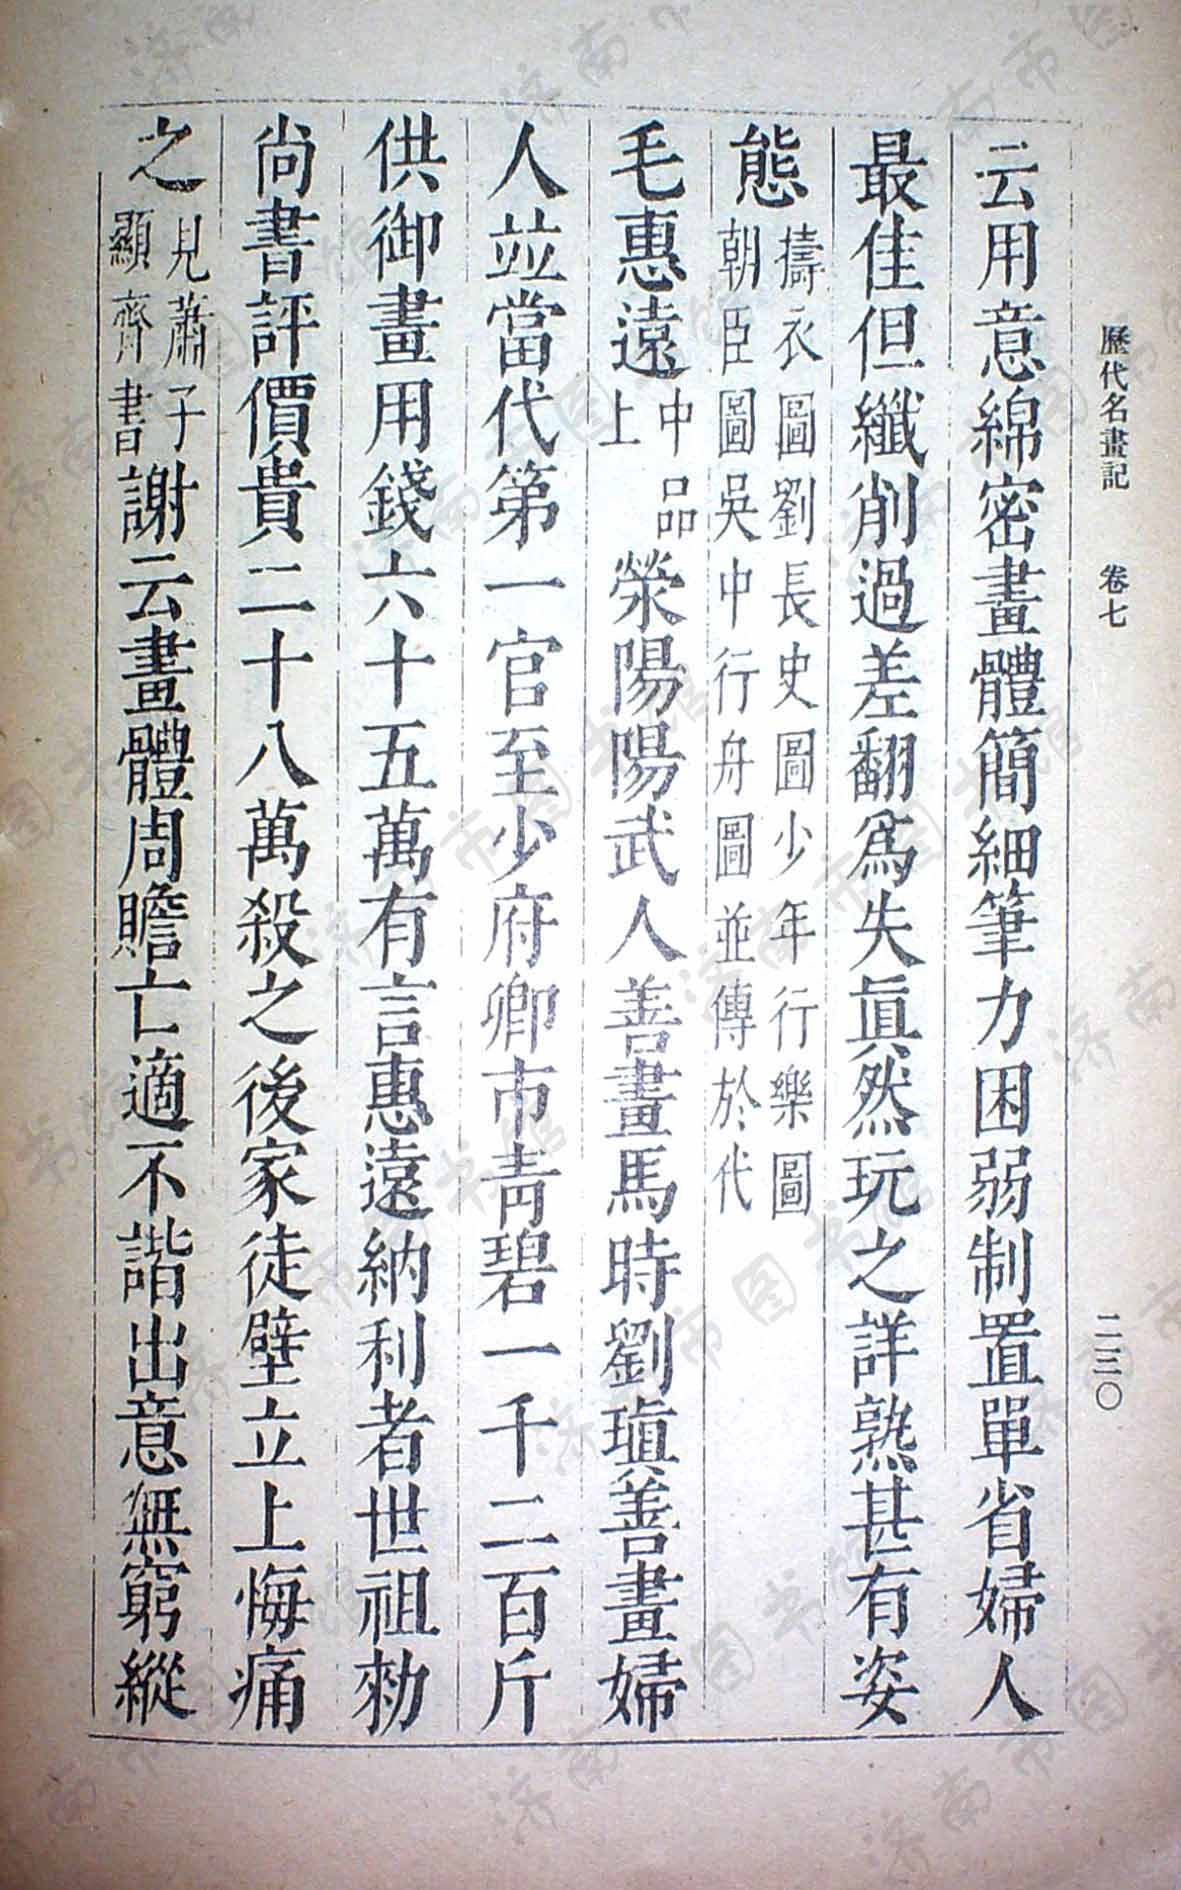 歷代名畫記 卷七 二三〇
云用意綿密畫體簡細筆力困弱制置單省婦人
最佳但纖削過差翻爲失眞然玩之詳熟甚有姿
態擣衣圖劉長史圖少年行樂圖
朝臣圖吳中行舟圖並傳於代
毛惠遠中品
上
滎陽陽武人善畫馬時劉瑱善畫婦
人並當代第一官至少府卿市靑碧一千二百斤
供御畫用錢六十五萬有言惠遠納利者世祖勑
尚書評價貴二十八萬殺之後家徒壁立上悔痛
之見蕭子
顯齊書
謝云畫體周贍亡適不諧出意無窮縱
济南市图书馆